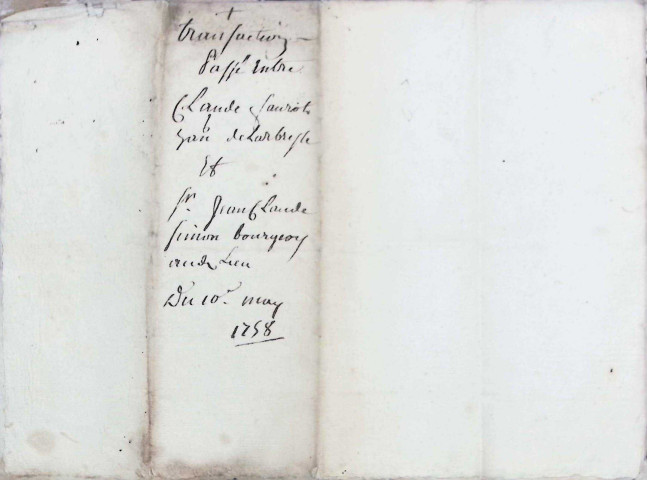 transaction
Passé Entre
Claude
de Larbresle
Et
Sr. Jean Claude
Simon bourgeois
audt Lieu
Du 10e may
1758